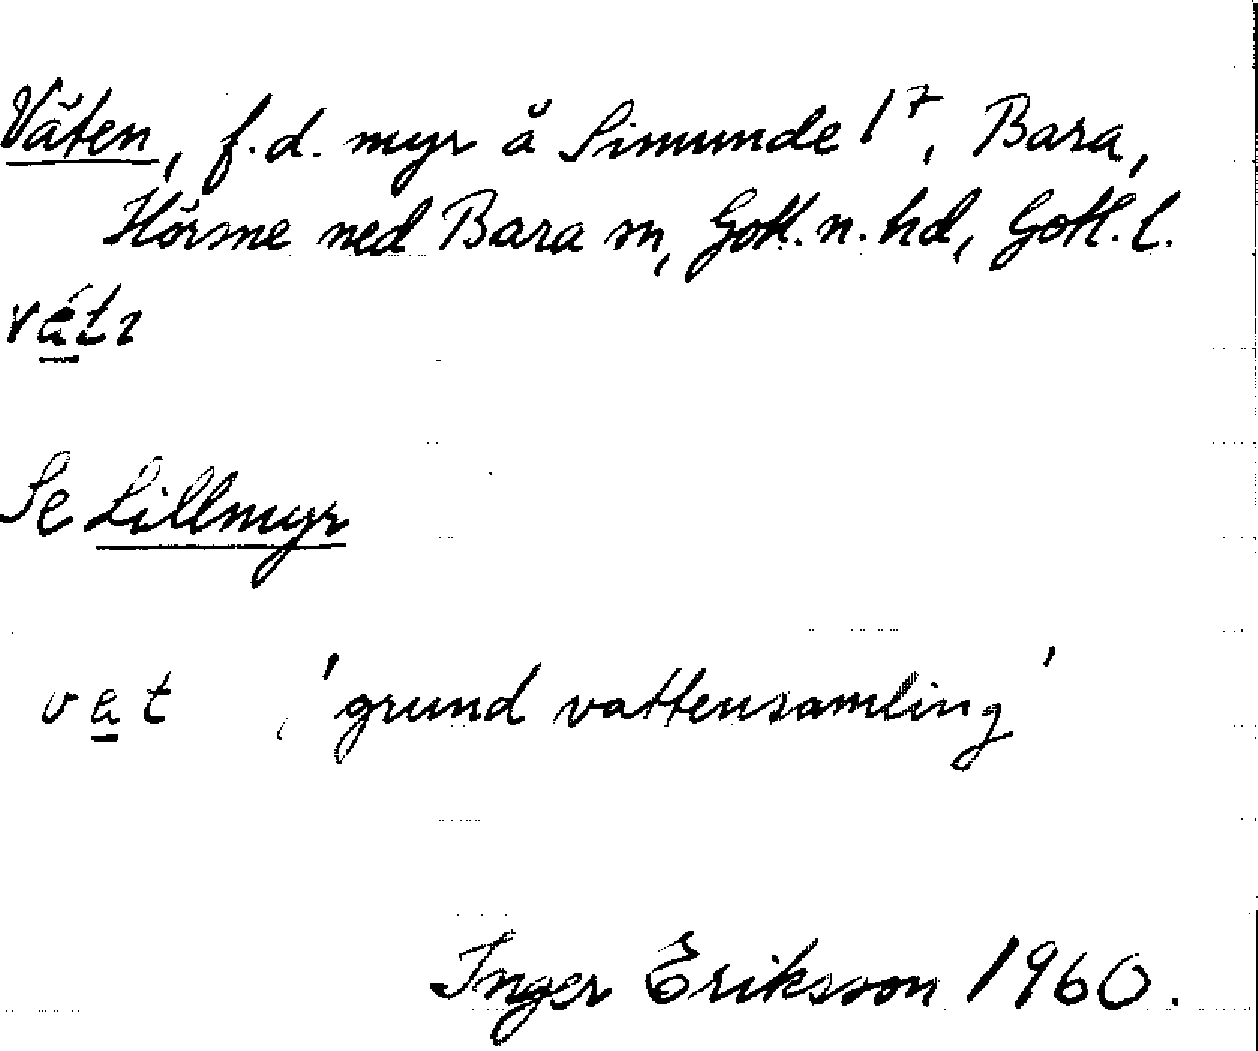 Våten, f.d. myr å Simunde 1⁷, Bara,
Hörsne med Bara sn, Gotl. n. hd, Gotl. l.
Se Lillmyr
vat , 'grund vattensamling'
Inger Eriksson 1960.